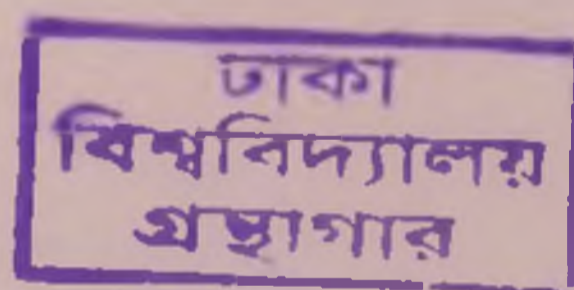 ঢাকা
বিশ্ববিদ্যালয়
গ্রন্থাগার